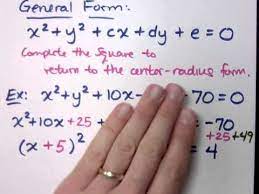 General Form:
x² + y² + cx + dy + e = 0
Complete the Square to
return to the center-radius form.
Ex: x² + y² + 10x - 70 = 0
x² + 10x + 25 = -70
+25 +49
(x + 5)² = 4